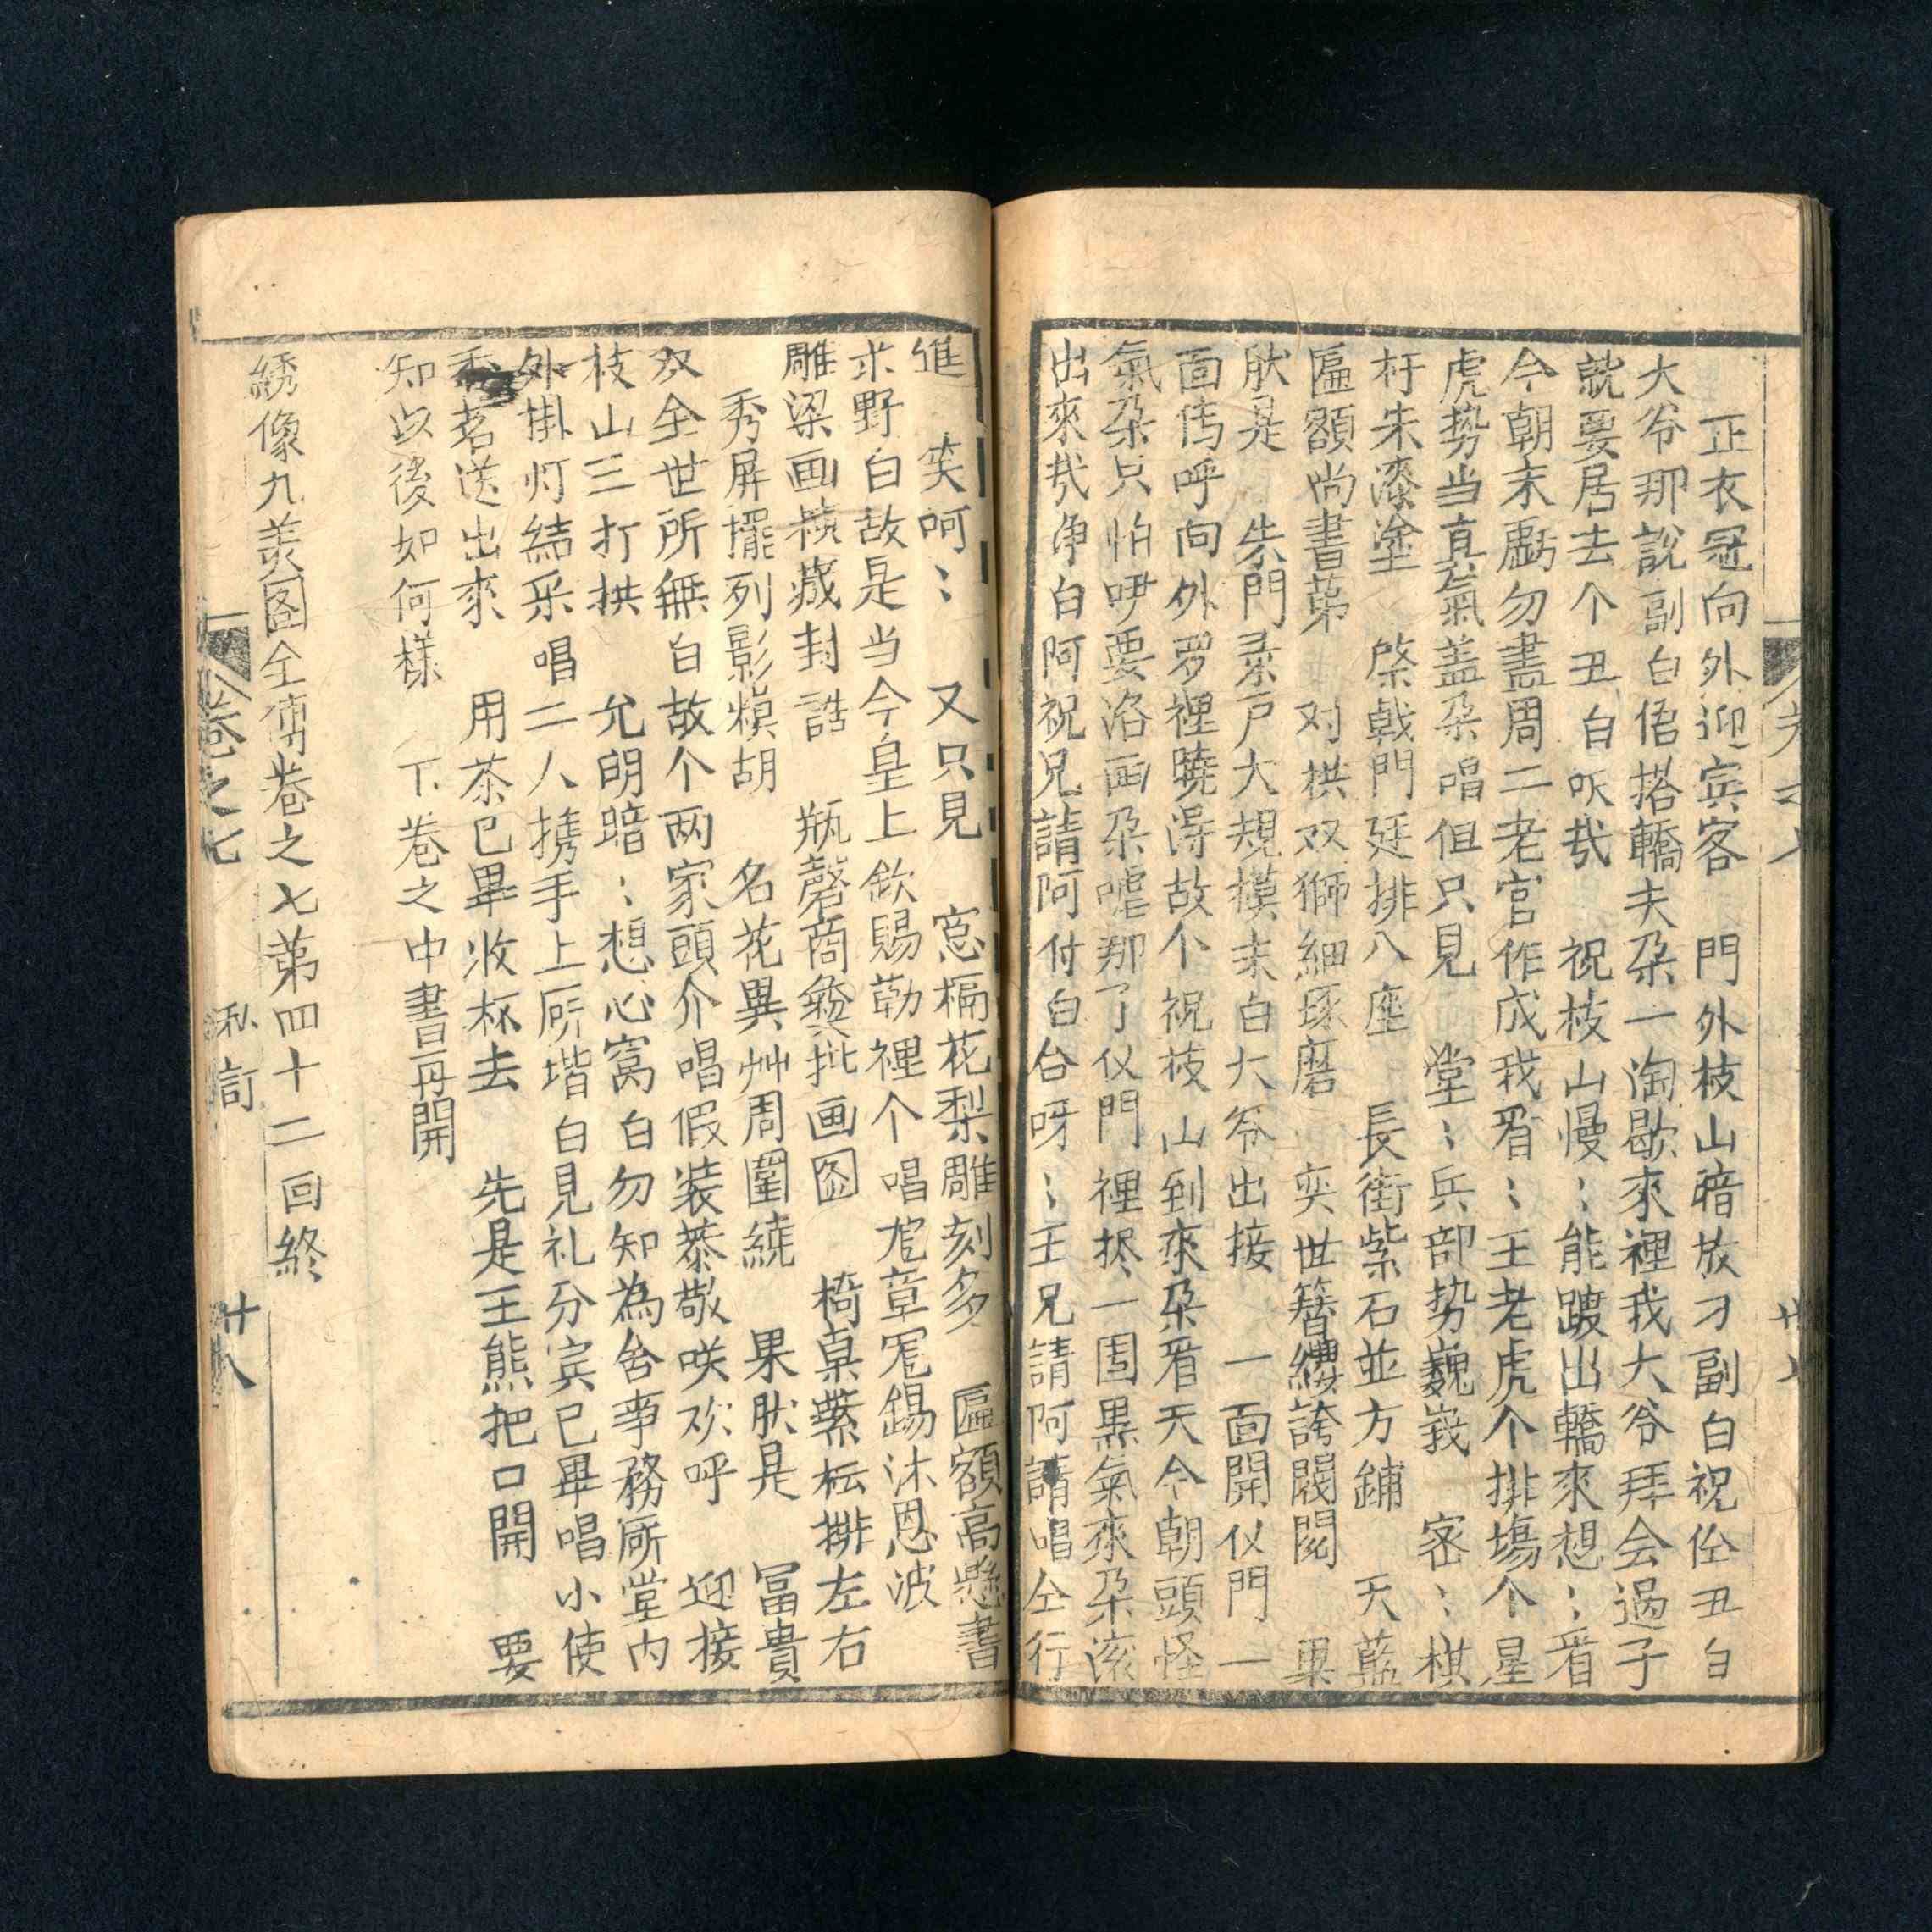 正衣冠向外迎宾客　門外枝山暗放刁副白祝仝丑白
大爷那說副白偖搭轎夫朶一淘歇來裡我大爷拜会過子
就要居去个丑白㕽哉　祝枝山慢〻能踱出轎來想〻看
今朝末虧勿盡周二老官作成我看〻王老虎个排塲个星
虎势当真氣盖朶唱但只見　堂〻兵部势巍峩　密〻棋
杆朱漆塗　棨戟門廷排八座　長街紫石並方鋪　天藍
匾額尚書苐　对拱双獅細琢磨　奕世簪纓誇閥閱　果
肰是　朱門柔戸大規模末白大爷出接　一面開仪門一
面傳呼向外罗裡曉得故个祝枝山到來朶看天今朝頭怪
氣朶只怕吚要洛画朶嘘那了仪門裡拯一固黒氣來朶滚
出來哉净白阿祝兄請阿付白台呀〻王兄請阿請唱仝行
進　笑呵〻　又只見　窓槅花梨雕刻多　匾額高懸書
求野白故是当今皇上欽賜勒裡个唱㡯章冤錫沐恩波
雕梁画棟藏封誥　瓶磬商彝批画图　椅桌䌓枟排左右
秀屏擺列影糢胡　名花異艸周圍繞　果肰是　冨貴
双全世所無白故个两家頭介唱假装恭敬咲欢呼　迎接
枝山三打拱　允明暗〻想心窩白勿知為舍亊務厮堂内
外掛灯結采唱二人携手上厮堦白見礼分宾已畢唱小使
香茗送出來　用茶已畢收杯去　先是王熊把口開　要
知以後如何樣　下巻之中書再開
綉像九美图全傳巻之七第四十二回終
巻之七　私訂　廿八